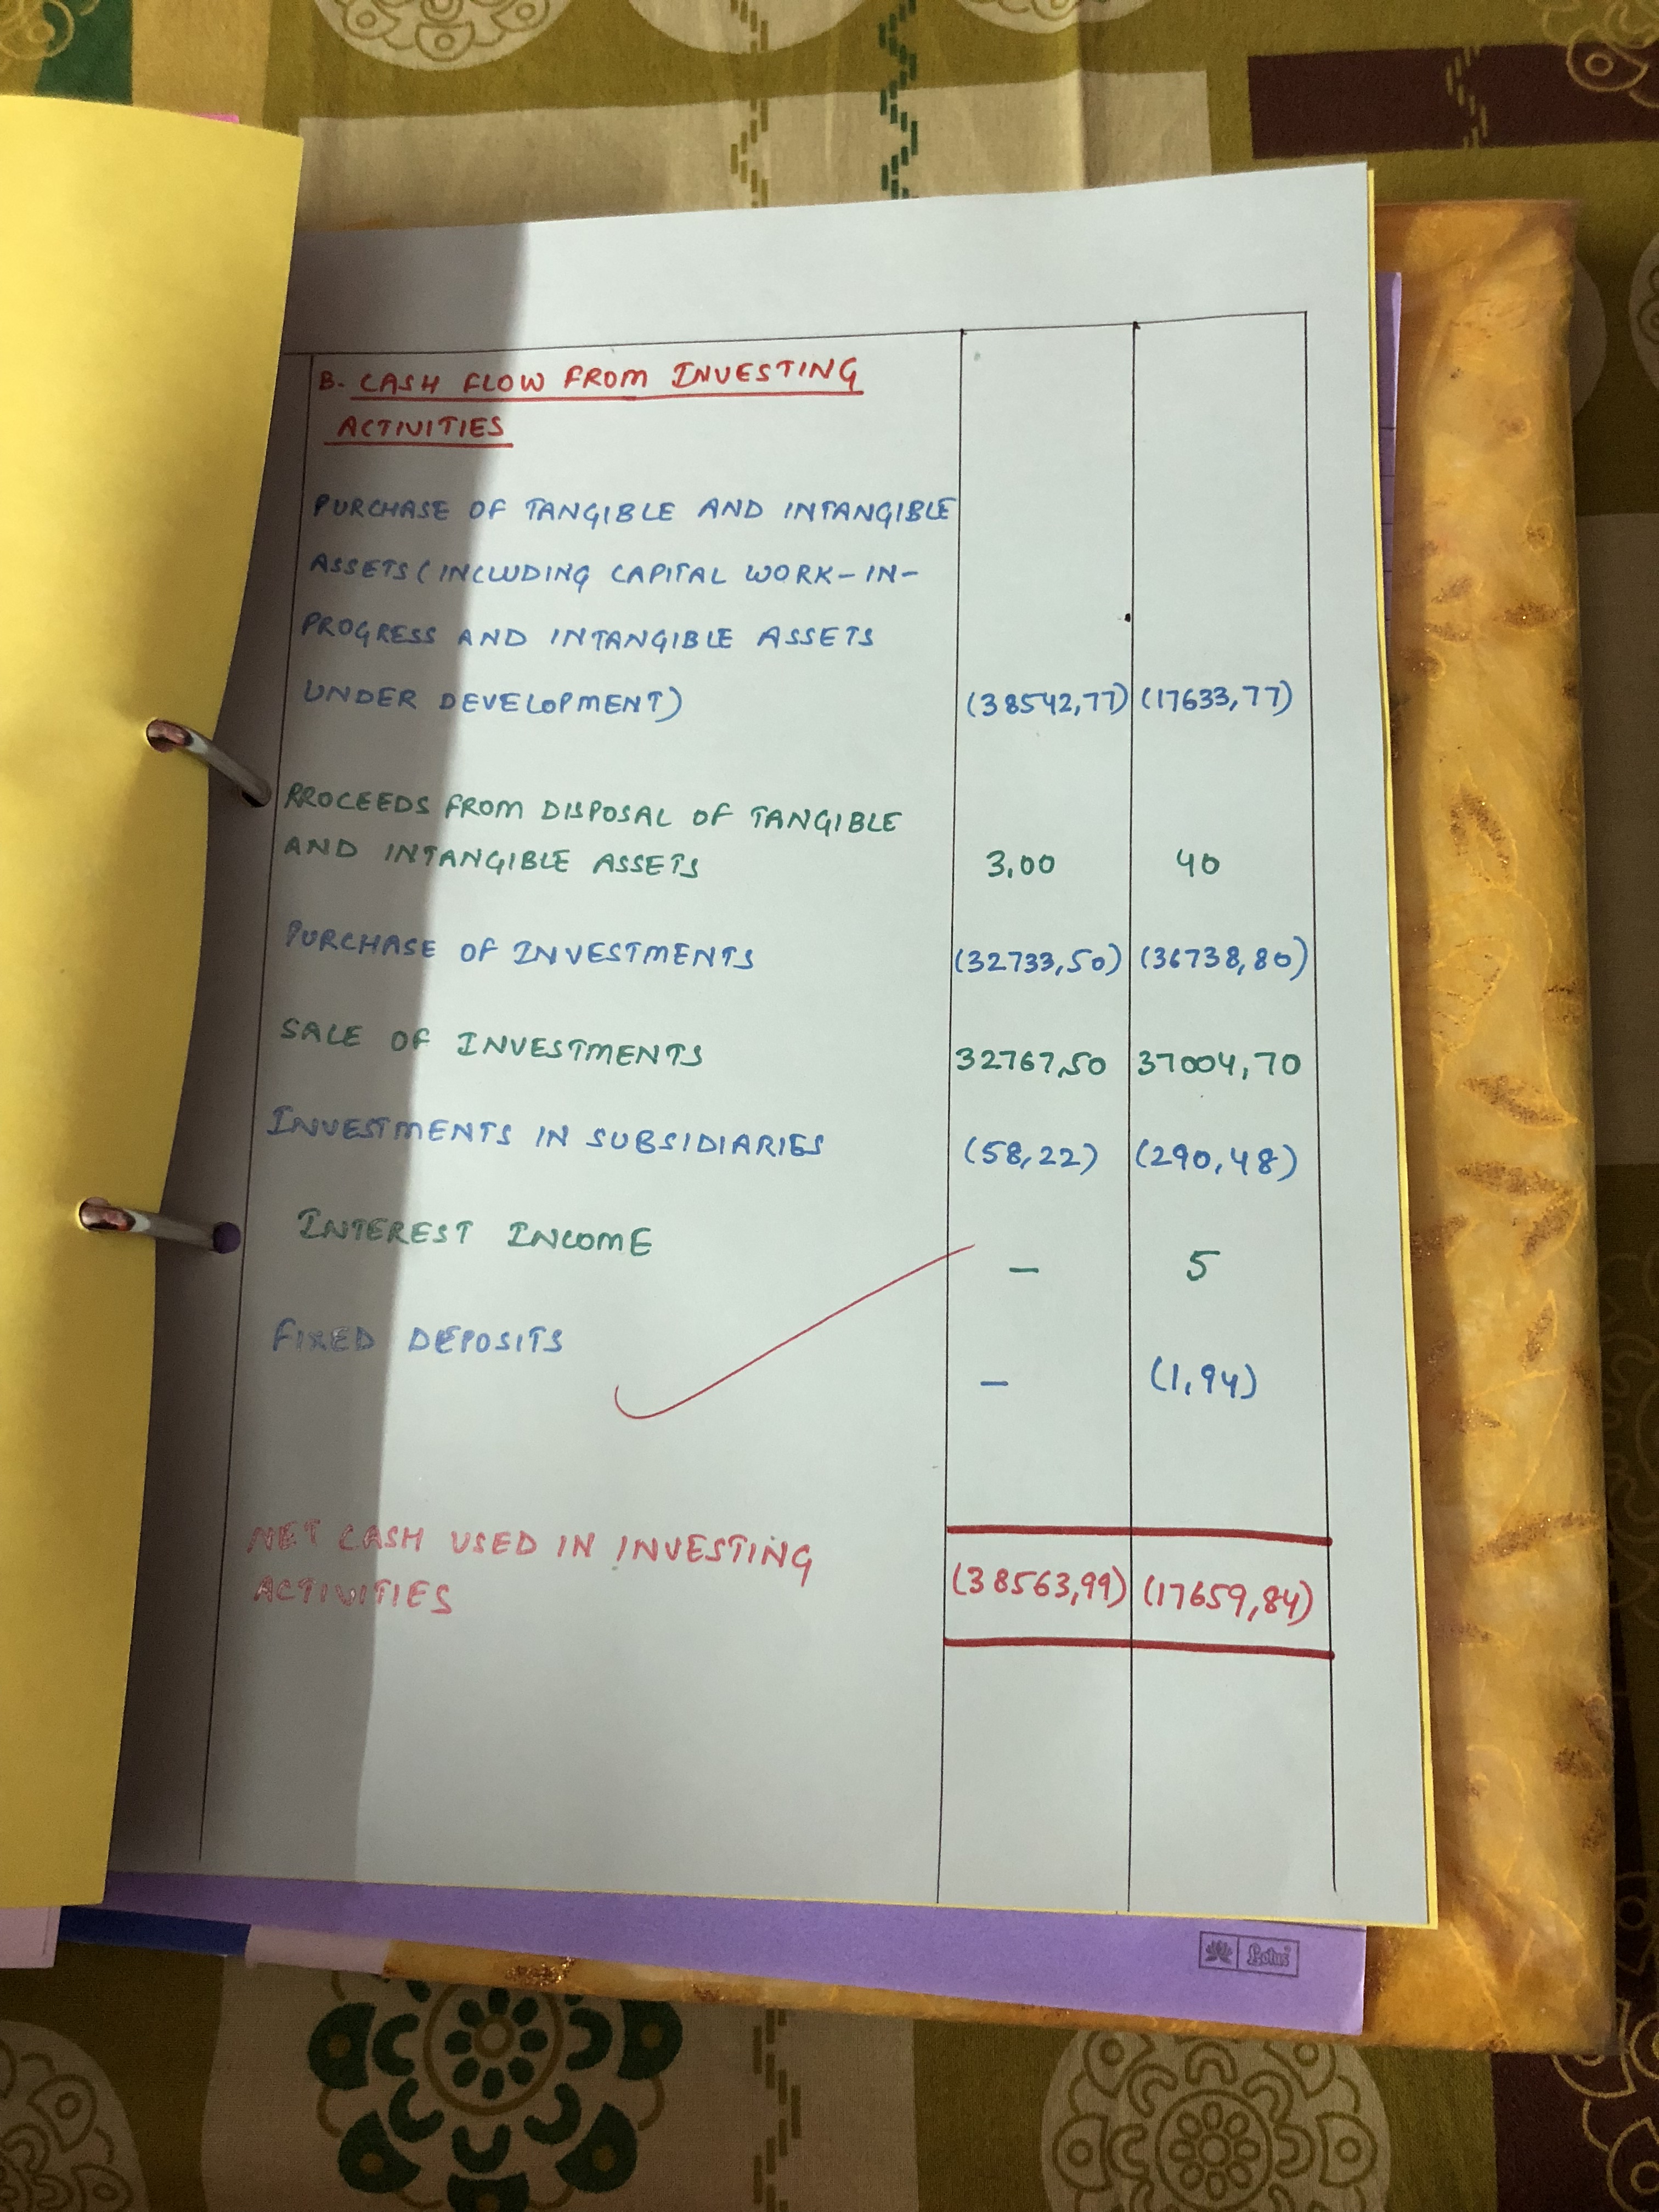 B. CASH FLOW FROM INVESTING
ACTIVITIES
PURCHASE OF TANGIBLE AND INTANGIBLE
ASSETS (INCLUDING CAPITAL WORK-IN-
PROGRESS AND INTANGIBLE ASSETS
UNDER DEVELOPMENT) (38542,77) (17633,77)
PROCEEDS FROM DISPOSAL OF TANGIBLE
AND INTANGIBLE ASSETS 3,00 40
PURCHASE OF INVESTMENTS (32733,50) (36738,80)
SALE OF INVESTMENTS 32767,50 37004,70
INVESTMENTS IN SUBSIDIARIES (58,22) (290,48)
INTEREST INCOME — 5
FIXED DEPOSITS — (1,94)
NET CASH USED IN INVESTING
ACTIVITIES (38563,99) (17659,84)
Lotus